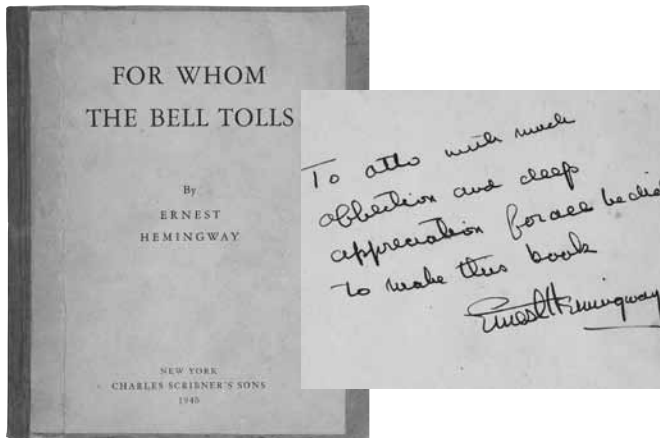 FOR WHOM
THE BELL TOLLS
By
ERNEST
HEMINGWAY
NEW YORK
CHARLES SCRIBNER'S SONS
1940
To Otto with much
affection and deep
appreciation for all he did
to make this book
Ernest Hemingway